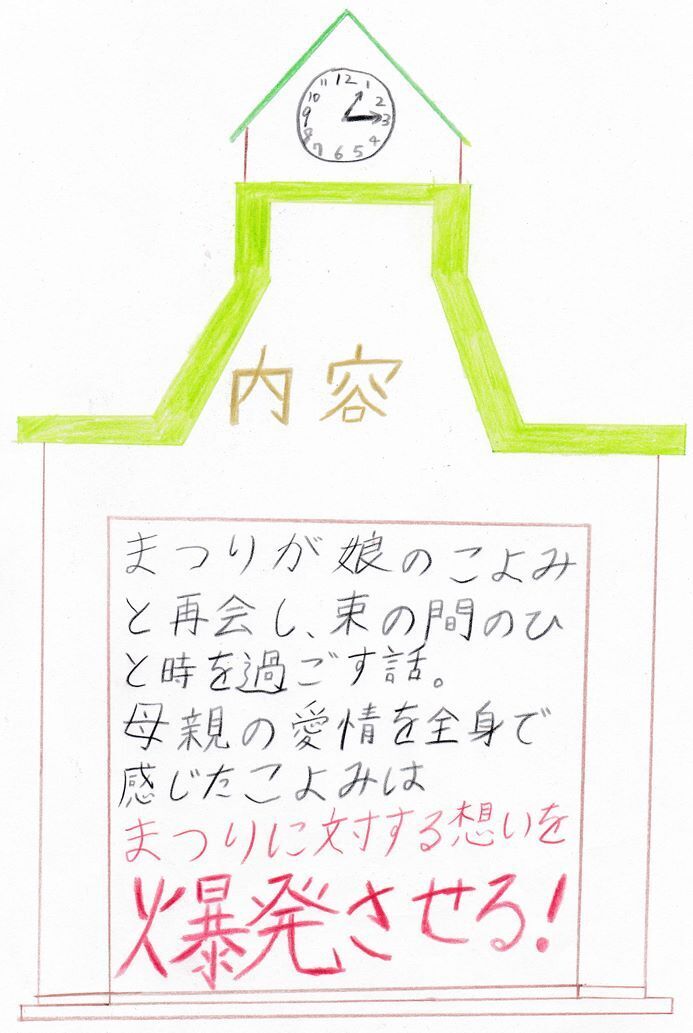 12
11 1
10 2
9 3
8 4
7 6 5
内容
まつりが娘のこよみ
と再会し、束の間のひ
と時を過ごす話。
母親の愛情を全身で
感じたこよみは
まつりに対する想いを
爆発させる!